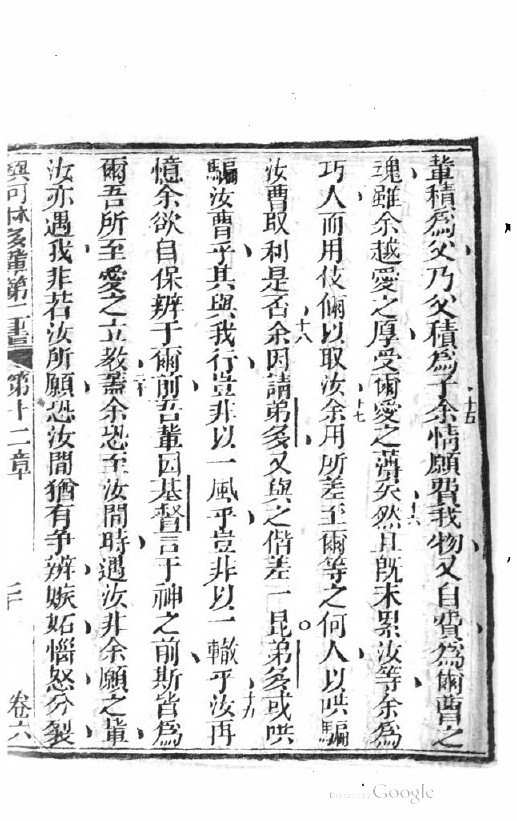 輩積為父乃父積為子余情願費我物又自費為爾曹之
十五
魂雖余越愛之厚受爾愛之薄矣然且既未累汝等余為
十六
巧人而用伎倆以取汝余用所差至爾等之何人以哄騙
十七
汝曹取利是否余因請弟多又與之偕差一昆弟多或哄
十八
騙汝曹乎其與我行豈非以一風乎豈非以一轍乎汝再
十九
憶余欲自保辨于爾前吾輩因基督言于神之前斯皆為
爾吾所至愛之立教蓋余恐至汝間時遇汝非余願之輩
二十
汝亦遇我非若汝所願恐汝間猶有争辨嫉妬惱怒分裂
與可林多輩第二書 第十二章 二十 卷六
Digitized by Google